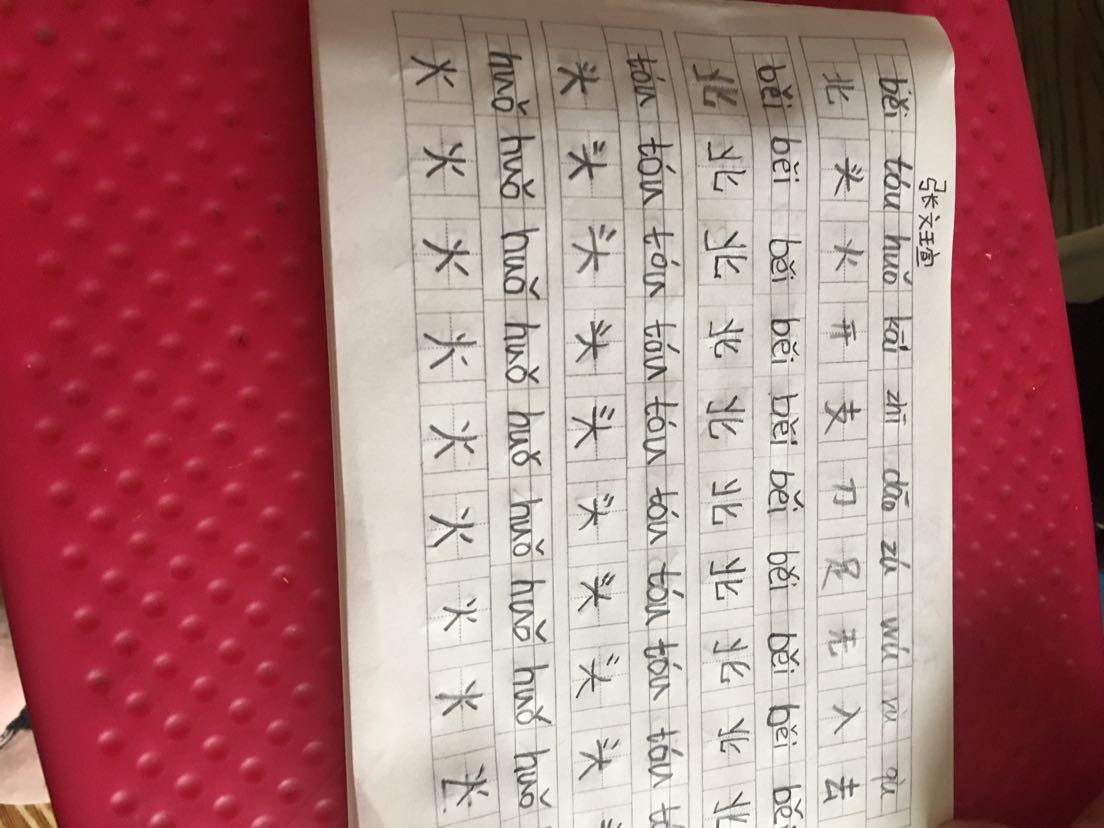 张文瑄
běi tóu huǒ kāi zhī dāo zú wú rù qù
北 头 火 开 支 刀 足 无 入 去
běi běi běi běi běi běi běi běi běi běi
北 北 北 北 北 北 北 北 北 北
tóu tóu tóu tóu tóu tóu tóu tóu tóu t
头 头 头 头 头 头 头 头 头
huǒ huǒ huǒ huǒ huǒ huǒ huǒ huǒ huǒ
火 火 火 火 火 火 火 火 火